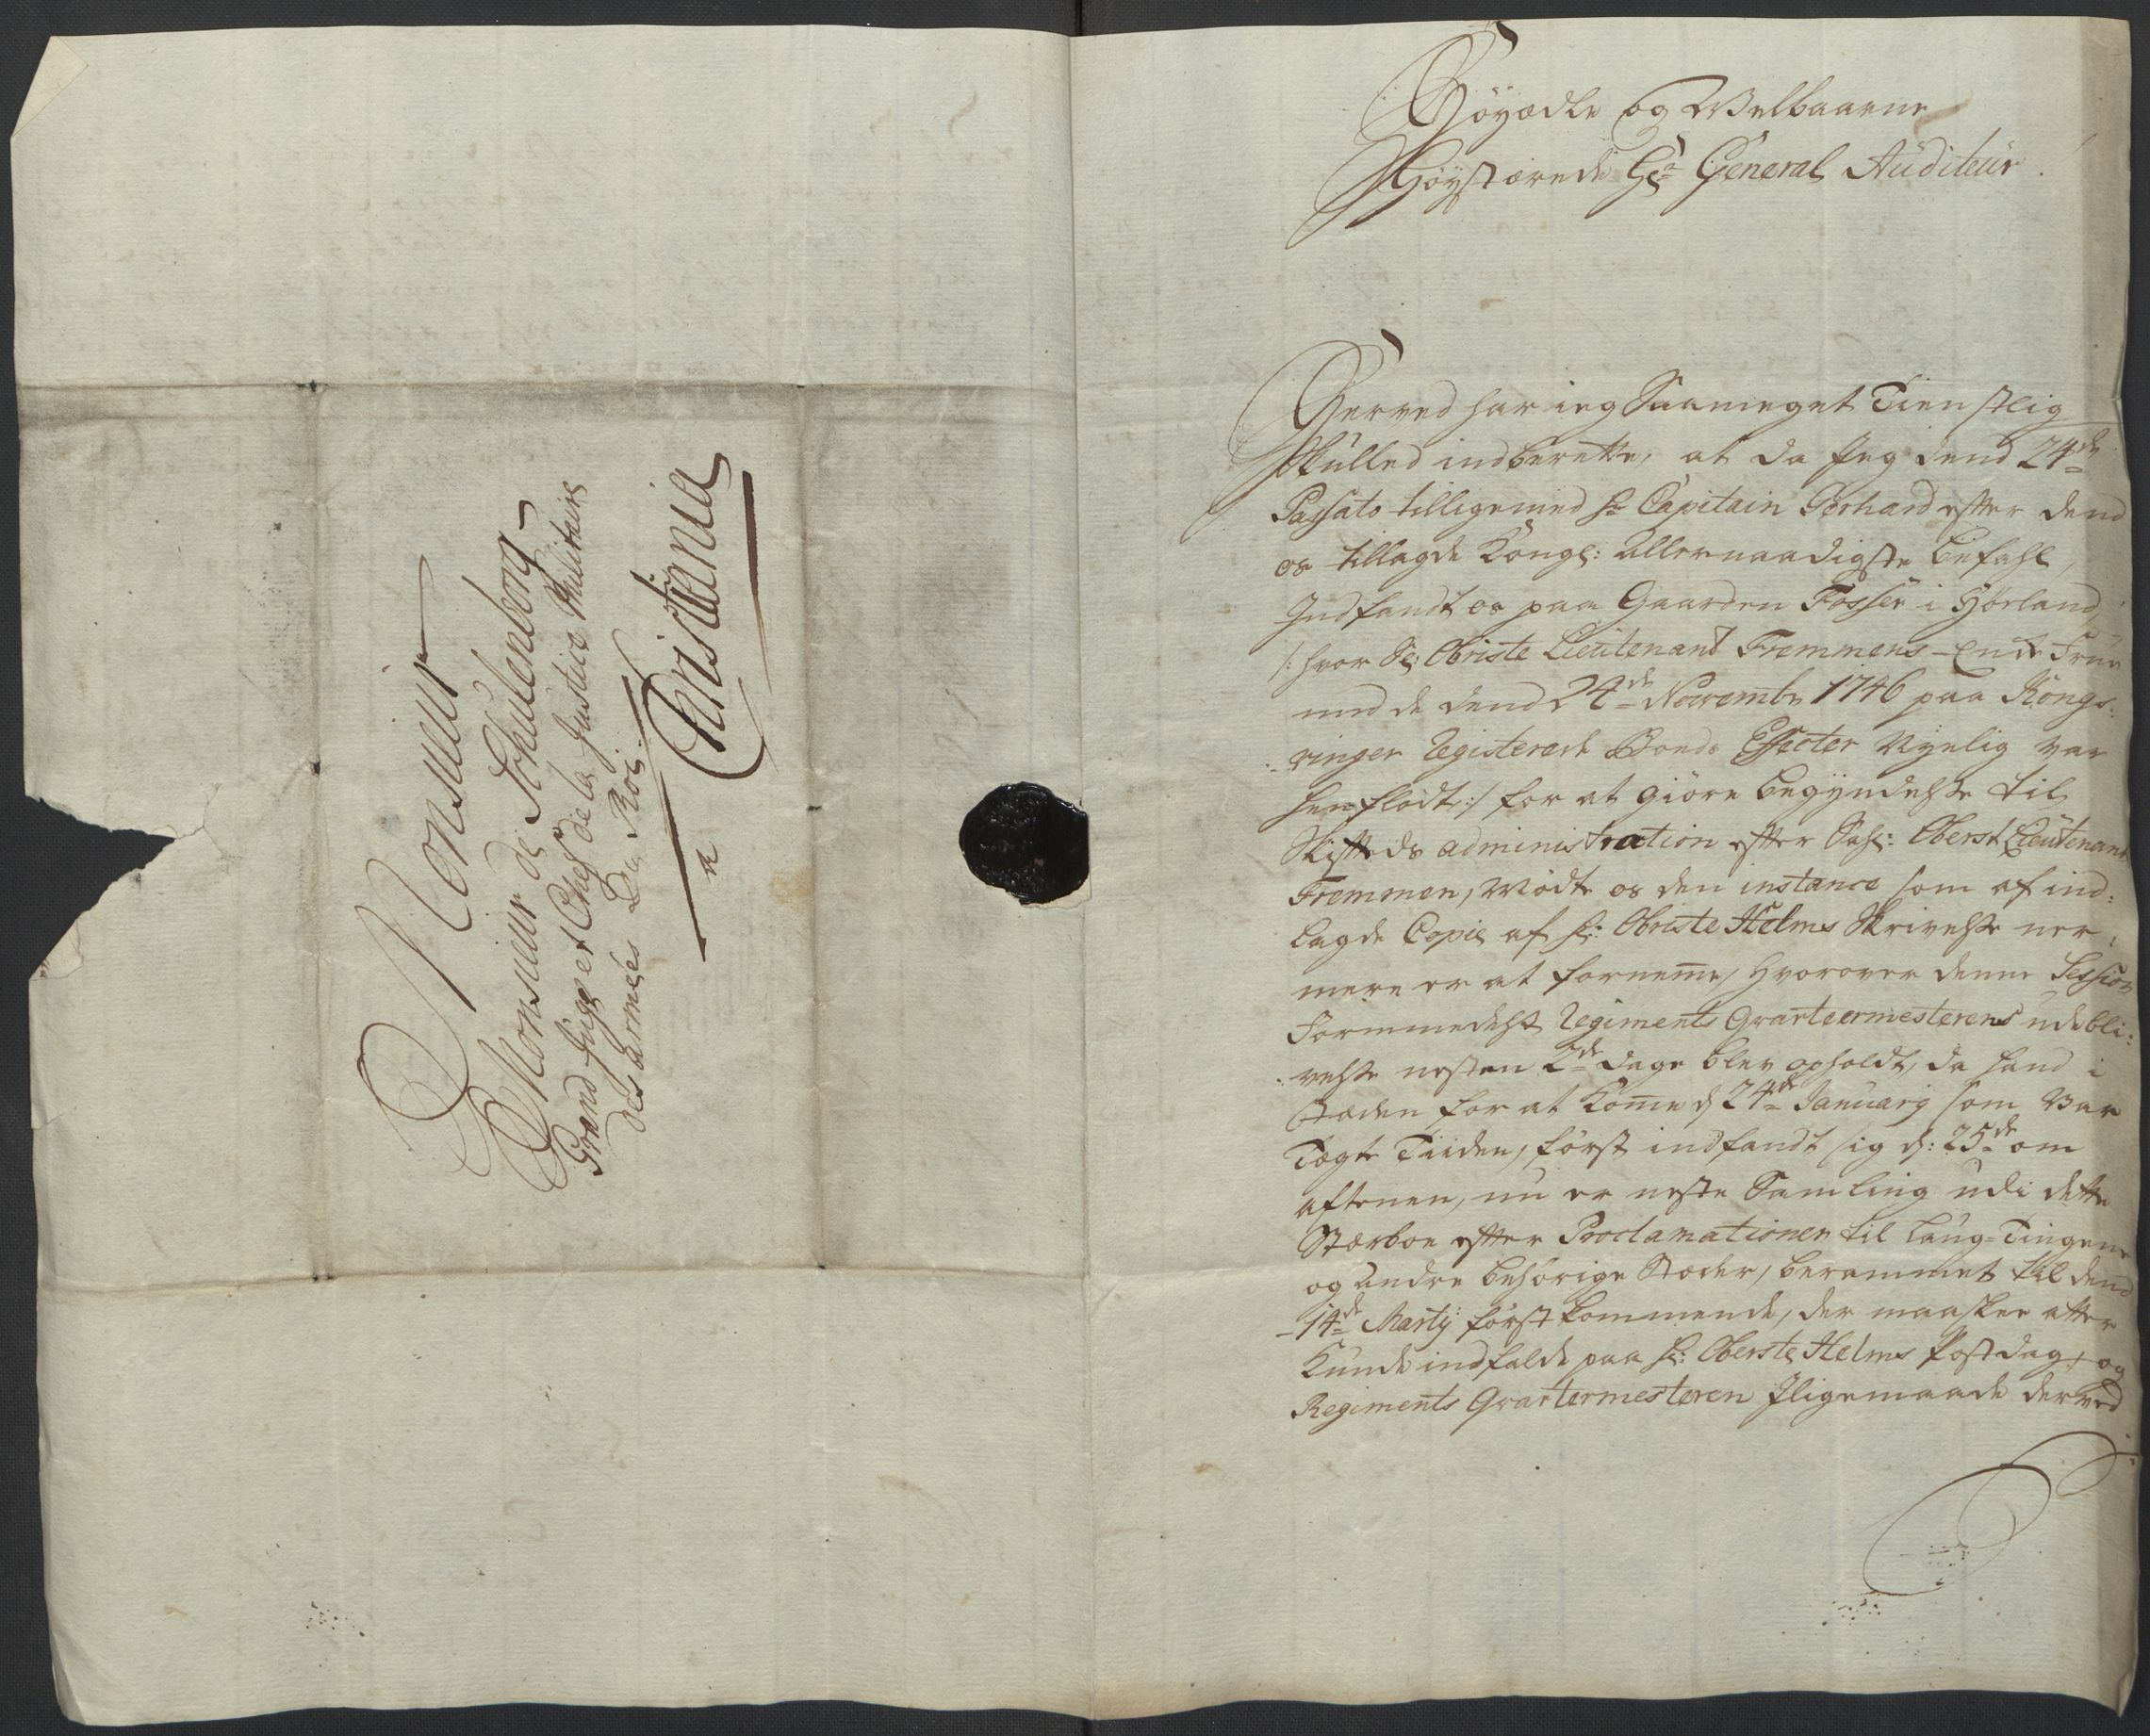 Monsieur
Monsieur de Schulenborg
Grand Juge et Chef de la Justice Militaire
des armées Du Roi.
a Christiania
Höyædle og Welbaarne
Höystærede Hr General Auditeur
Herved har ieg Saameget Tienstlig
skulled indberette, at da Jeg dend 24de
Passato tilligemed Hr Capitain Gerhard efter dend
os tillagde Kongl: Allernaadigste Befahl,
Indfandt os paa Gaarden Fosser i Hörland,
/: hvor Sl: Obriste Lieutenant Fremmens Encke Frue
med de dend 24de Novembr 1746 paa Kongs-
vinger Registerede Boeds Effecter Nyelig var
henflödt :/ for at giöre begyndelse til
Skifteds administration efter Sahl: Oberst Lieutenant
Fremmen, Mödte os den instance som af ind-
lagde Copie af Hr: Obriste Helms Skrivelse ner-
mere er at fornemme, hvorover denne Session
formmedelst Regiments Qvarteermesterens udebli-
velse nesten 2de dage blev opholdt, da hand i
stæden for at Komme d 24de Januarij som var
Tægte Tiiden, først indfandt sig d: 25de om
aftenen, nu er neste Samling udi dette
Stærboe efter Proclamationen til Laug-Tingene
og andre behörige Stæder, berammet til dend
14de Martij förstkommende, der maaskee atter
Kunde indfalde paa Hr: Oberste Helms Postdag, og
Regiments Qvartermesteren Iligemaade derved